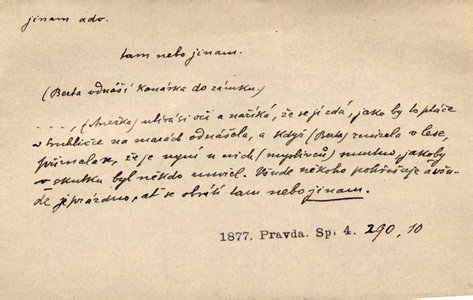 jinam adv.
tam nebo jinam.
(Berta odnáší konárka do zámku)
– – –, (Anežka) utírá si oči a naříká, že se jí zdá, jako by to ptáče
v truhličce na marách odnášela, a když (Berta) zmizela v lese,
že je nyní u nich (myslivců) smutno, jakoby
v skutku byl někdo umřel. Všude někoho pohřešuje a všu-
de je prázdno, ať se obrátí tam nebo jinam.
1877. Pravda. Sp. 4. 290, 10